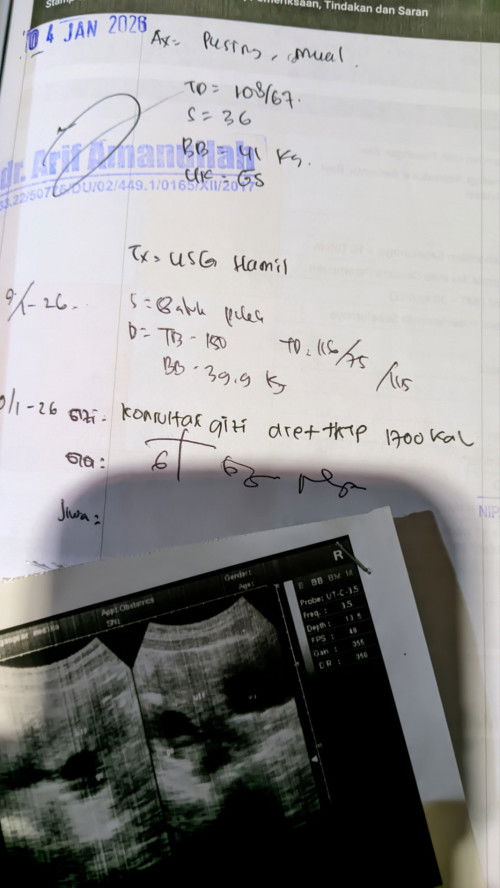 Pemeriksaan, Tindakan dan Saran
04 JAN 2026
Ax= Pusing, mual.
TD= 108/67.
S= 36
BB= 41 Kg.
dr. Arif Amanullah
UK= GS
/DU/02/449.1/0165/XII/2017
Tx= USG Hamil
9/1-26.
S= Batuk pilek
O= TB- 150
TD. 116/75
/115
BB- 39.9 Kg
0/1-26 Gizi: Konsultasi gizi diet TKTP 1700 Kal
Gigi:
6
Jiwa:
NIP
R
Appl:Obstetrics
Gender:
Age:
E BB BM M
Probe: UT-C-3.5
Freq.: 3.5
Depth:
FPS: 48
Gain:
DR: